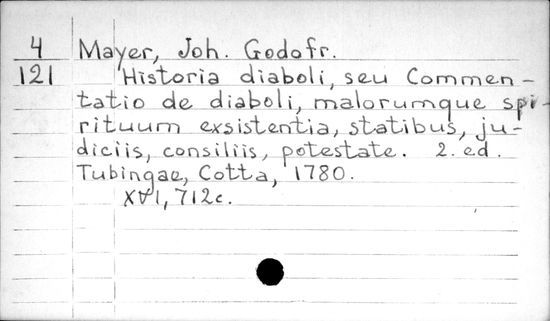 4 Mayer, Joh. Godofr.
121 Historia diaboli, seu Commen-
tatio de diaboli, malorumque spi-
rituum exsistentia, statibus, ju-
diciis, consiliis, potestate. 2. ed.
Tubingae, Cotta, 1780.
XVI, 712c.